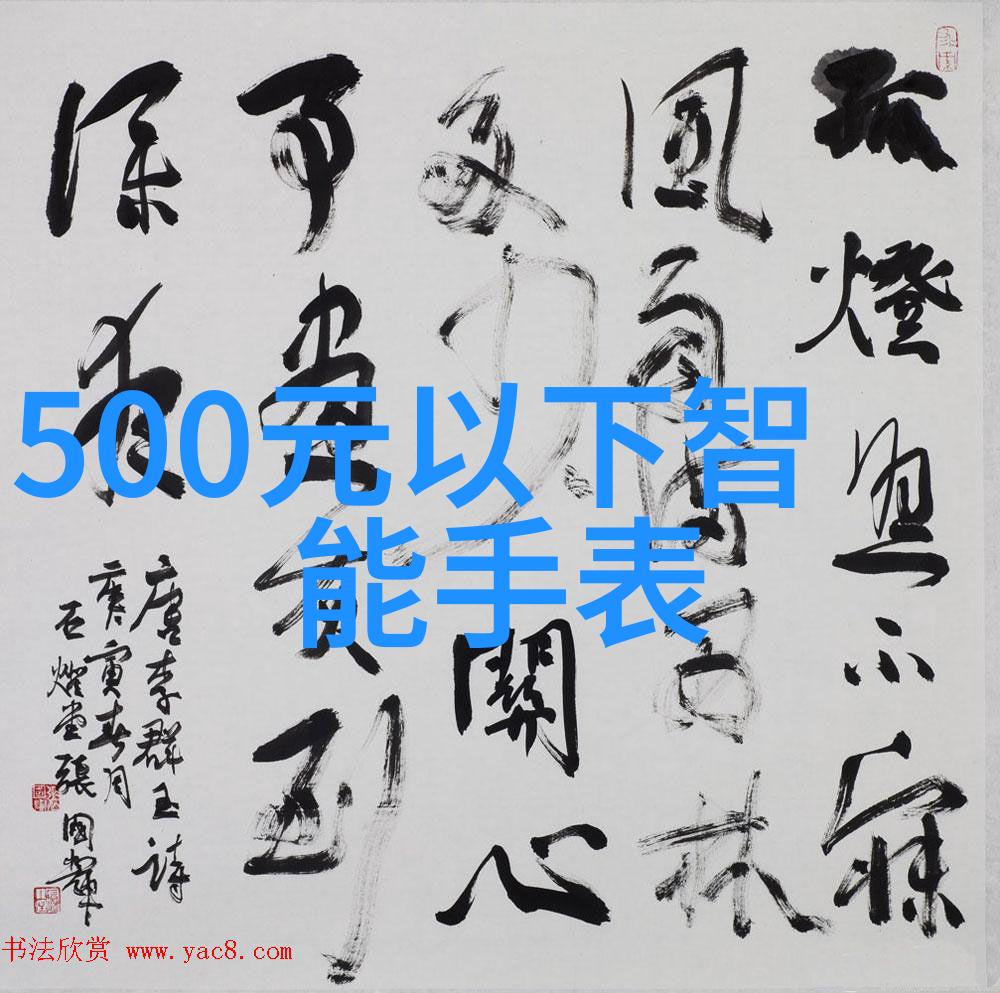 孤燈照不寐
風雨滿西林
多少關心
事書灰到
深夜
唐李群玉詩
庚寅春月
石燈堂張國輝
500元以下智
能手表
书法欣赏 www.yac8.com